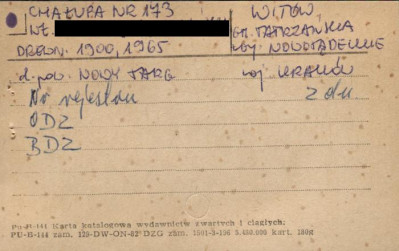 CHAŁUPA NR 173 WITÓW
WŁ. GM. TATRZAŃSKA
DREWN. 1900, 1965 woj. NOWOSĄDECKIE
d. pow. NOWY TARG woj KRAKÓW
Nr rejestru z dn.
ODZ
BDZ
Pu-B-144 Karta katalogowa wydawnictw zwartych i ciągłych:
PU-B-144 zam. 129-DW-ON-82 DZG zam. 1501-3-196 5.450.000 kart. 180g